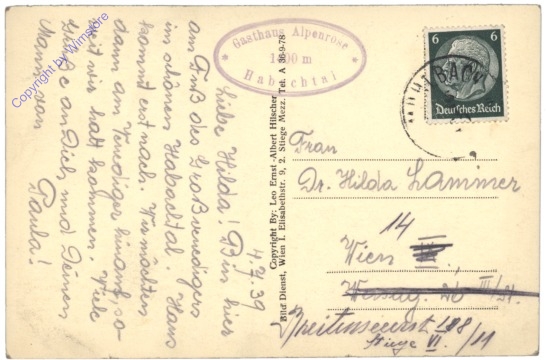 4.7.39
Liebe Hilda! Bin hier
am Fuß des Großvenedigers
im schönen Habachtal. Hans
kommt erst nach. Wir möchten
dann am Venediger hinauf, so-
weit wir halt kommen. Viele
Grüße an Dich und Deinen
Mann von
Paula!
Gasthaus Alpenrose
1400 m
Habachtal
Copyright By: Leo Ernst-Albert Hilscher
Bild Dienst, Wien I. Elisabethstr. 9, 2. Stiege Mezz. Tel. A 36-9-78
6 6
Deutsches Reich
Frau
Dr. Hilda Lammer
14
Wien
III/21.
Breitenseerst. 108/11
Stiege VI.
Copyright by Wimstore